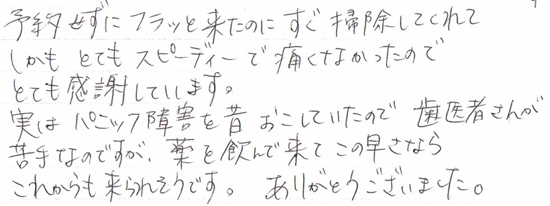 予約せずにフラッと来たのにすぐ掃除してくれて
しかもとてもスピーディーで痛くなかったので
とても感謝しています。
実はパニック障害を昔おこしていたので歯医者さんが
苦手なのですが、薬を飲んで来てこの早さなら
これからも来られそうです。ありがとうございました。